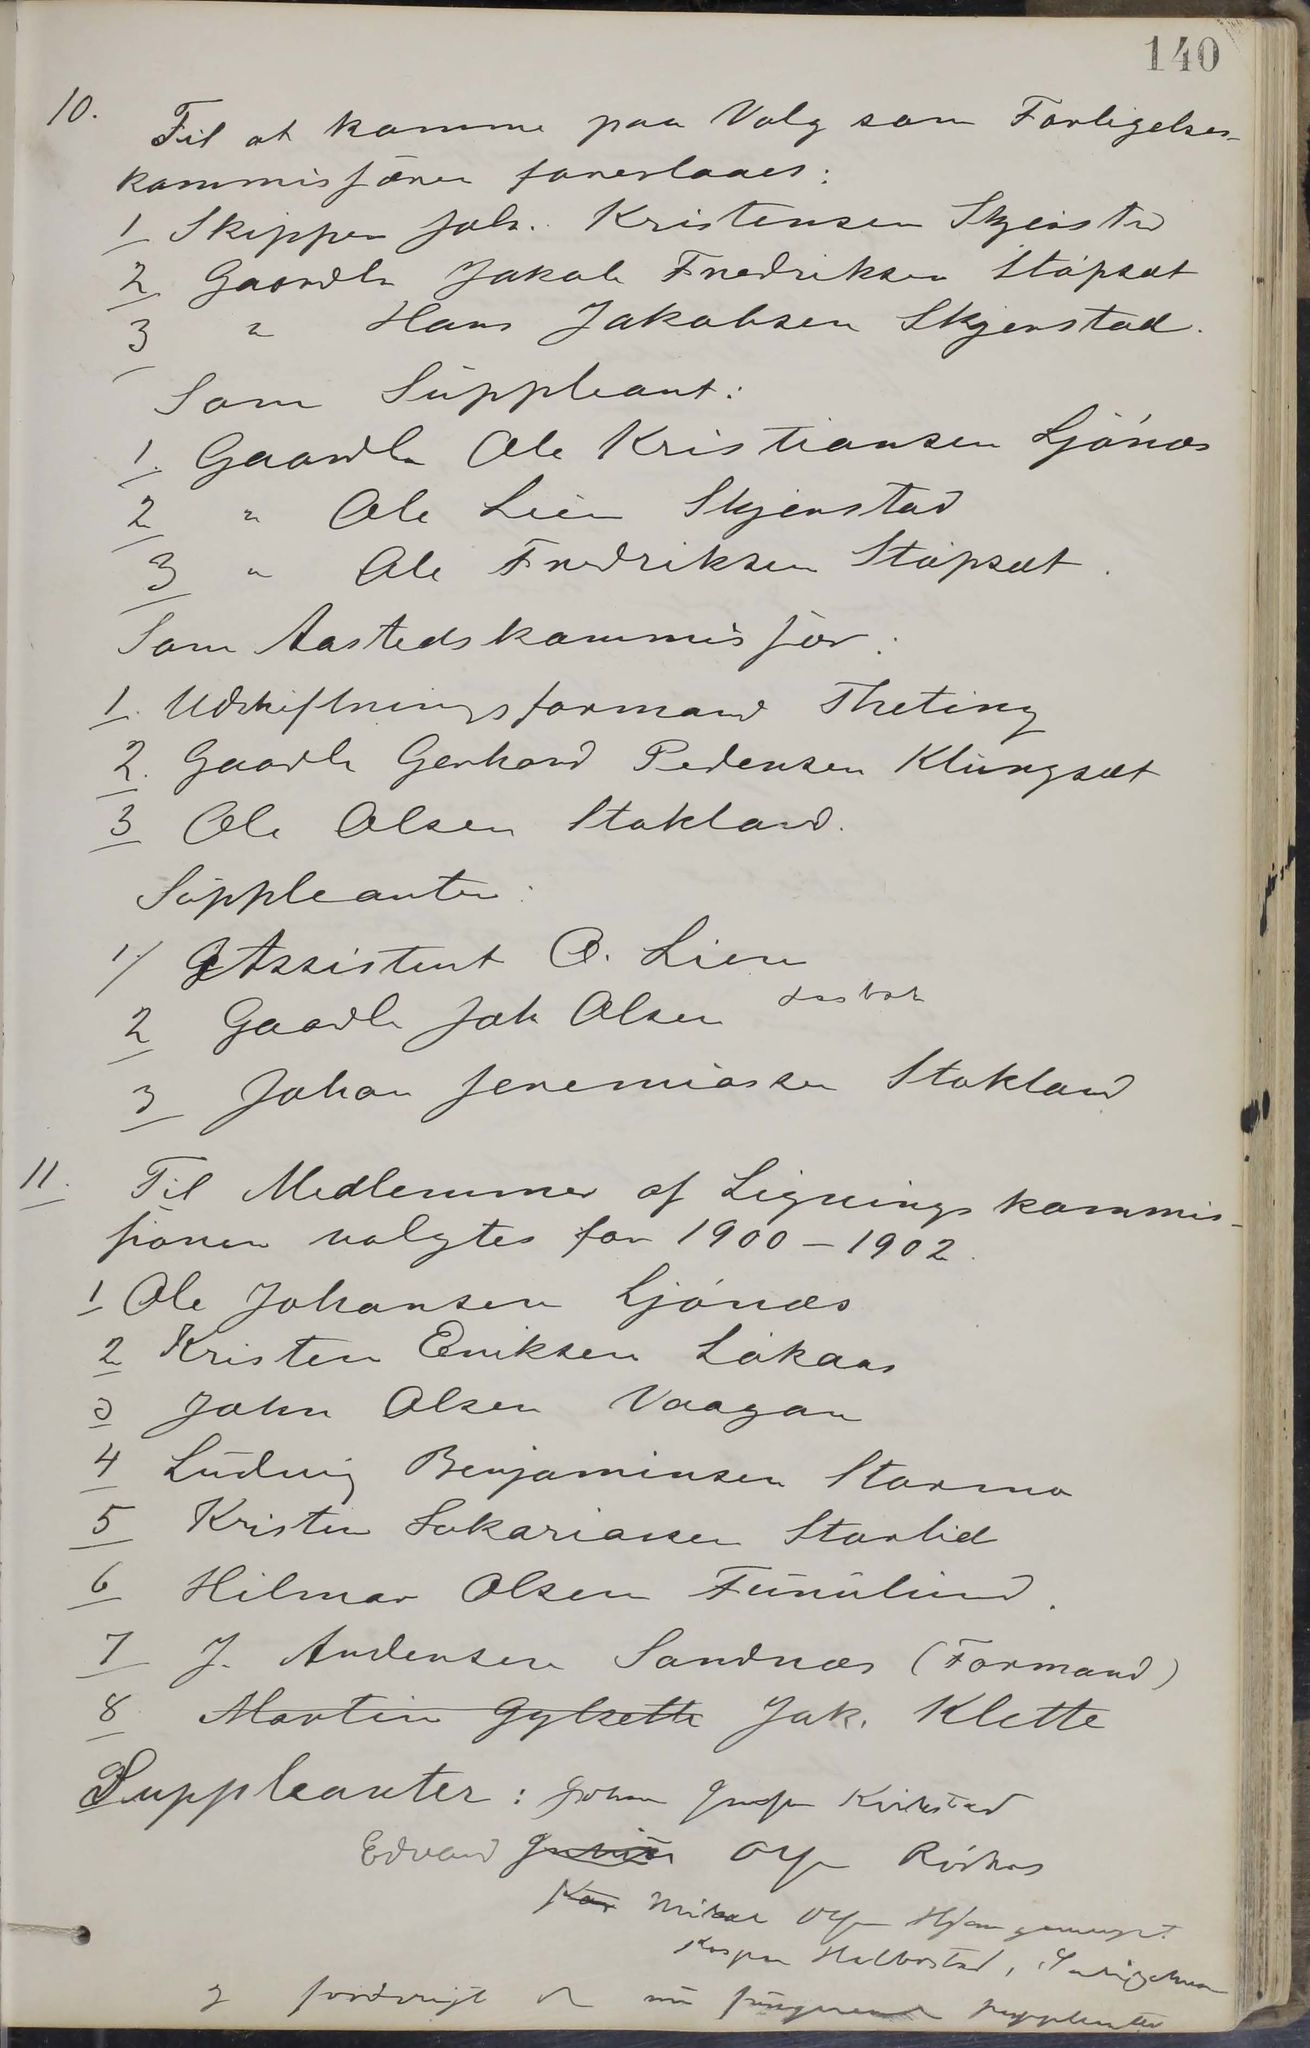 140
10.
Til at komme paa Valg som Forligelses-
kommisjærer foreslaaes:
1 Skipper Joh. Kristensen Skjerstad
2 Gaardbr Jakob Fredriksen Støpsæt
3 " Hans Jakobsen Skjerstad.
Som Suppleant:
1. Gaardbr Ole Kristiansen Ljønæs
2 " Ole Lien Skjerstad
3 " Ole Fredriksen Støpsæt.
Som Aastedskommisjær:
1. Udskiftningsformand Theting
2. Gaardbr Gerhard Pedersen Klungsæt
3 Ole Olsen Stokland.
Suppleanter:
1/ Assistent O. Lien
2 Gaardbr Joh Olsen
3 Johan Jeremiassen Stokland
11.
Til Medlemmer af Ligningskommis-
sjonen valgtes for 1900 - 1902.
1 Ole Johansen Ljønæs
2 Kristen Eriksen Løkaas
3 John Olsen Vaagan
4 Ludvig Benjaminsen Stormo
5 Kristen Sakariassen Storlid
6 Hilmar Olsen Furulund.
7 J. Andersen Sandnæs (Formand)
8 Martin Gylseth Jak. Klette
Suppleanter: Johan Kvikstad
Edvard Røsnes
Kar Mikal
Kasper Halbostad,
nu fungerende suppleanter